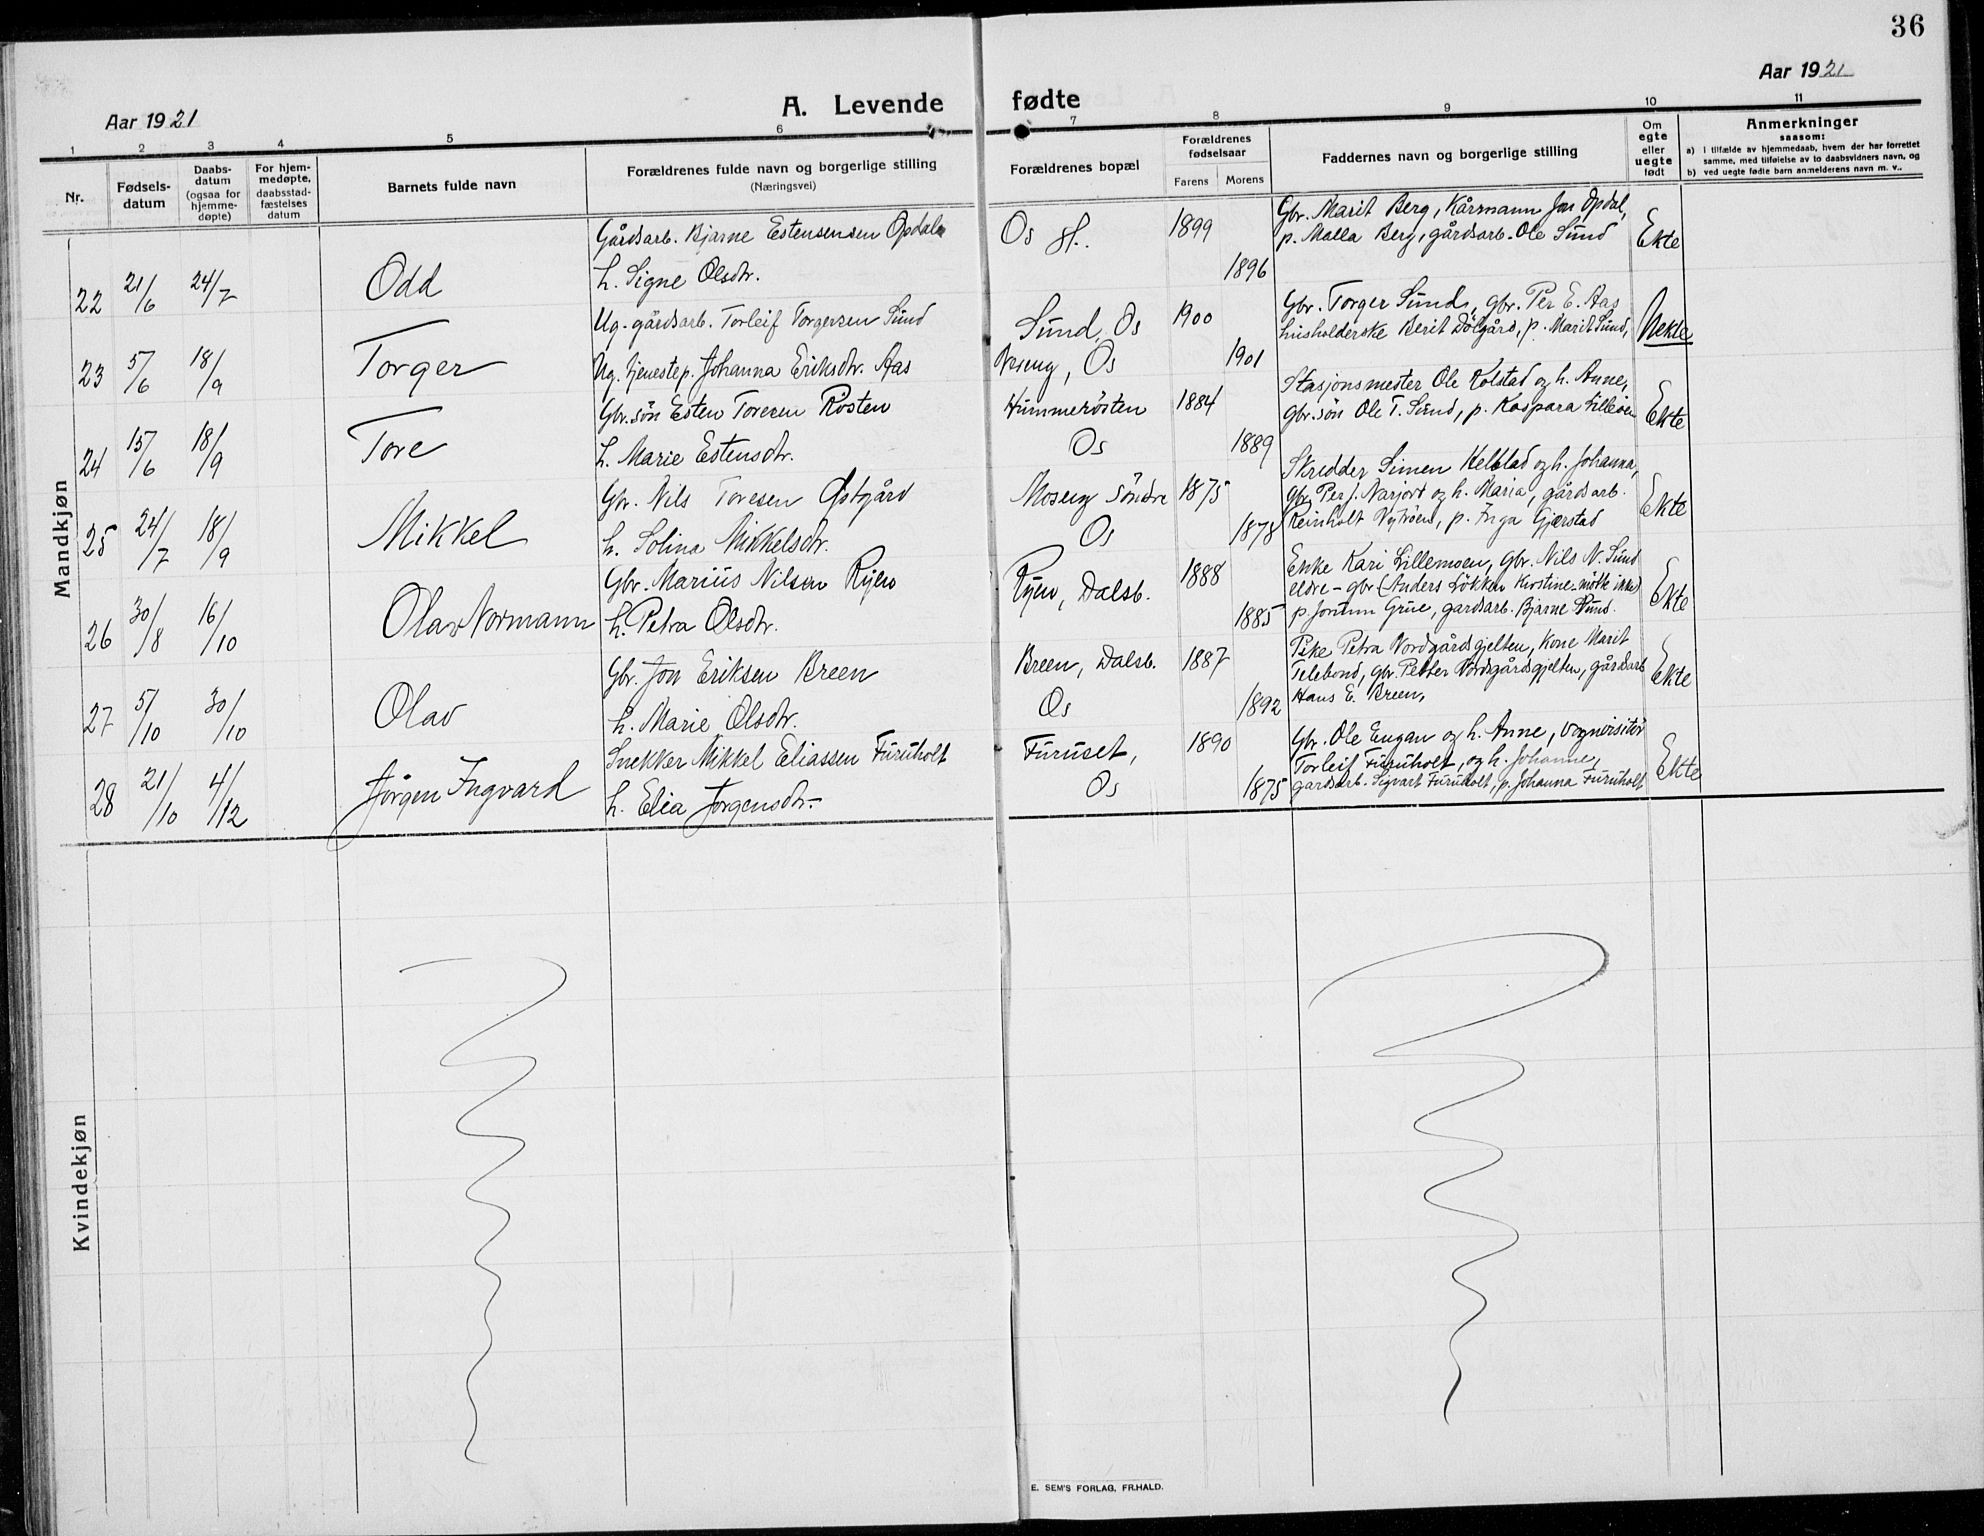 36
Aar 1921
A. Levende fødte
Aar 1921
1 2 3 4 5 6 7 8 9 10 11
Nr.
Fødsels-
datum
Daabs-
datum
(ogsaa for
hjemme-
døpte)
For hjem-
medøpte,
daabsstad-
fæstelses
datum
Barnets fulde navn
Forældrenes fulde navn og borgerlige stilling
(Næringsvei)
Forældrenes bopæl
Forældrenes
fødselsaar
Farens Morens
Faddernes navn og borgerlige stilling
Om
egte
eller
uegte
født
Anmerkninger
saasom:
a) i tilfælde av hjemmedaab, hvem der har forrettet
samme, med tilføielse av to daabsvidners navn, og
b) ved uegte fødte barn anmelderens navn m. v..
Mandkjøn
22 21/6 24/7 Odd
Gårdsarb. Bjarne Estensensen Opdal
h. Signe Olsdtr.
Os st. 1899 1896
Gbr. Marit Berg, Kårmann Jon Opdal,
p. Malla Berg, gårdsarb. Ole Sund
Ekte
23 5/6 18/9 Torger
Ug. gårdsarb. Torleif Torgersen Sund
Ug. tjenestep. Johanna Eriksdtr. Aas
Sund, Os 1900
Os 1901
Gbr. Torger Sund, gbr. Per E. Aas
husholderske Berit Dölgård, p. Marit Sund,
Uekte
24 15/6 18/9 Tore
Gbr.sön Esten Toresen Rosten
h. Marie Estensdtr.
Hummerösten 1884
Os 1889
Stasjonsmester Ole Kolstad og h. Anne,
gbr.sön Ole T. Sund, p. Kaspara Lilleöen
Ekte
25 24/7 18/9 Mikkel
Gbr. Nils Toresen Østgård
h. Solina Mikkelsdtr.
Moseng söndre 1875
Os 1878
Skredder Simen Kelstad og h. Johanna,
gbr. Per J. Narjord og h. Maria, gårdsarb.
Reinholt Nytröen, p. Inga Gjerstad
Ekte
26 30/8 16/10 Olav Normann
Gbr. Marius Nilsen Ryen
h. Petra Olsdtr.
Ryen, Dalsb. 1888 1885
Enke Kari Lillemoen, gbr. Nils N. Sund
eldre - gbr (Anders Løkken Kirstine - mötte ikke)
p. Jorunn Grue, gardsarb. Bjarne Sund.
Ekte
27 5/10 30/10 Olav
Gbr. Jon Eriksen Breen
h. Marie Olsdtr.
Breen, Dalsb. 1887
Os 1892
Pike Petra Nordgårdsgjelten, Kone Marit
Telebond, gbr. Petter Nordgårdsgjelten, gårdsarb
Hans E. Breen,
Ekte
28 21/10 4/12 Jørgen Ingvard
Snekker Mikkel Eliassen Furuholt
h. Elia Jørgensdtr.-
Furuset, 1890
Os 1875
Gbr. Ole Engan og h. Anne, vognvisitör
Torleif Furuholt, og h. Johanne,
gardsarb. Sigvart Furuholt, p. Johanna Furuholt
Ekte
Kvindekjøn
E. SEM'S FORLAG, FR.HALD.